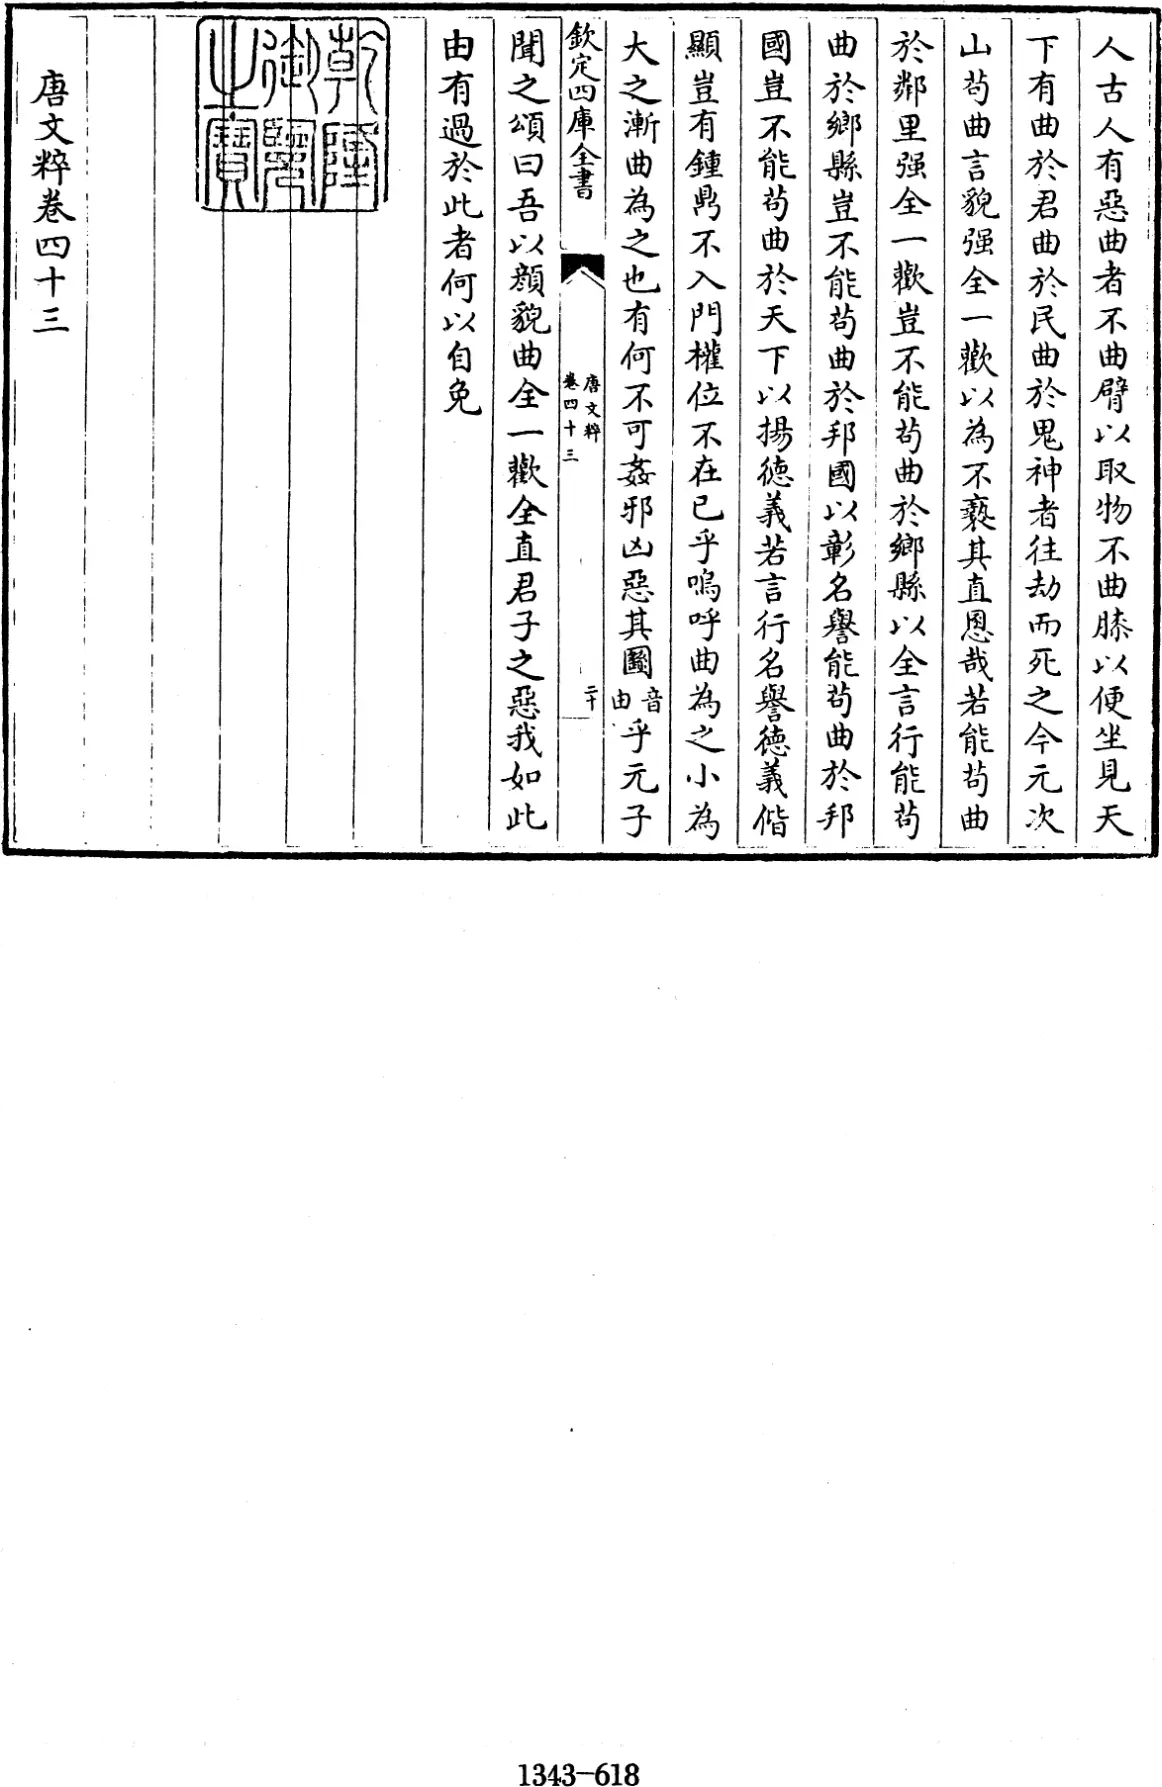 人古人有惡曲者不曲臂以取物不曲膝以便坐見天
下有曲於君曲於民曲於鬼神者往劫而死之今元次
山茍曲言貌强全一歡以為不褻其直恩哉若能茍曲
於鄰里强全一歡豈不能茍曲於鄉縣以全言行能茍
曲於鄉縣豈不能茍曲於邦國以彰名譽能茍曲於邦
國豈不能茍曲於天下以揚德義若言行名譽德義偕
顯豈有鍾鼎不入門權位不在已乎嗚呼曲為之小為
大之漸曲為之也有何不可姦邪凶惡其圝音由乎元子
欽定四庫全書
唐文粹
卷四十三
二十
聞之頌曰吾以顔貌曲全一歡全直君子之惡我如此
由有過於此者何以自免
乾隆御覽之寶
唐文粹卷四十三
1343-618